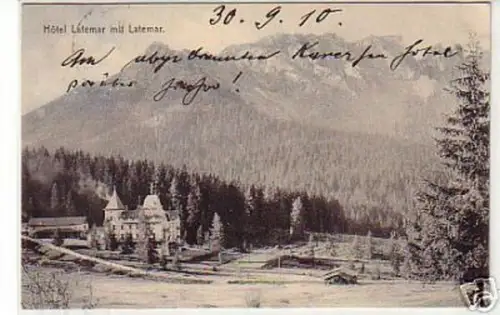 Hôtel Latemar mit Latemar.
30. 9. 10.
Am abgebrannten Karersee hotel
vorüber